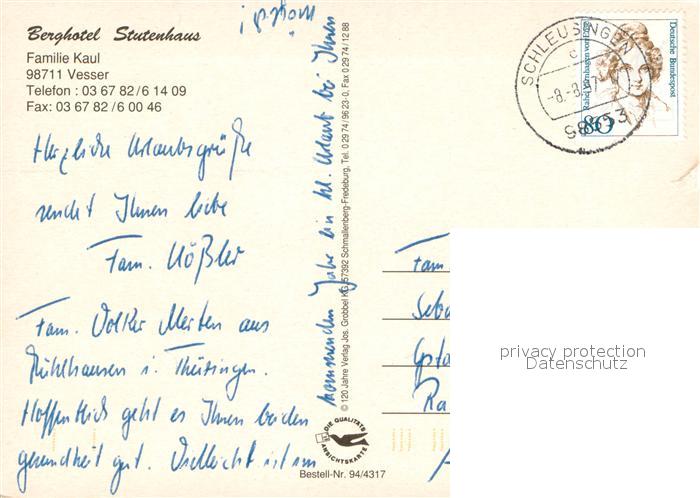 Berghotel Stutenhaus
Familie Kaul
98711 Vesser
Telefon : 03 67 82 / 6 14 09
Fax: 03 67 82 / 6 00 46
Herzliche Urlaubsgrüße
sendet Ihnen liebe
Fam. Kößler
Fam. Volker Merten aus
Mühlhausen i. Thüringen.
Hoffentlich geht es Ihnen beiden
gesundheit gut. Vielleicht ist im
kommenden Jahr ein kl. Urlaub bei Ihnen
© 120 Jahre Verlag Jos. Grobbel KG, 57392 Schmallenberg-Fredeburg, Tel. 0 29 74 / 96 23-0, Fax 0 29 74 / 12 88
DIE QUALITÄTS
ANSICHTSKARTE
Bestell-Nr. 94/4317
SCHLEUSINGEN
c
-8.-8.97
98553
Deutsche Bundespost
Rahel Varnhagen von Ense
80
Fam
Seba
Ra
privacy protection
Datenschutz